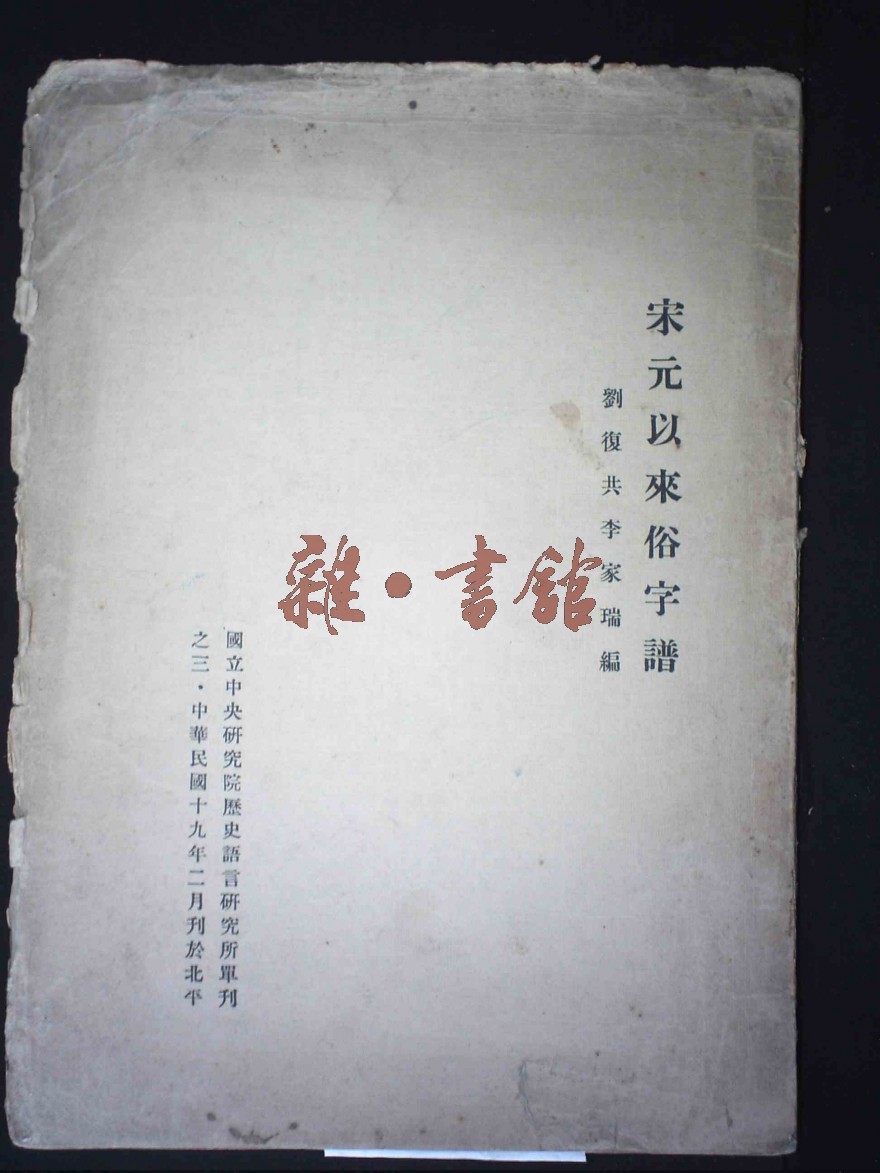 宋元以來俗字譜
劉復共李家瑞編
國立中央研究院歷史語言研究所單刊
之三·中華民國十九年二月刊於北平
雜·書館